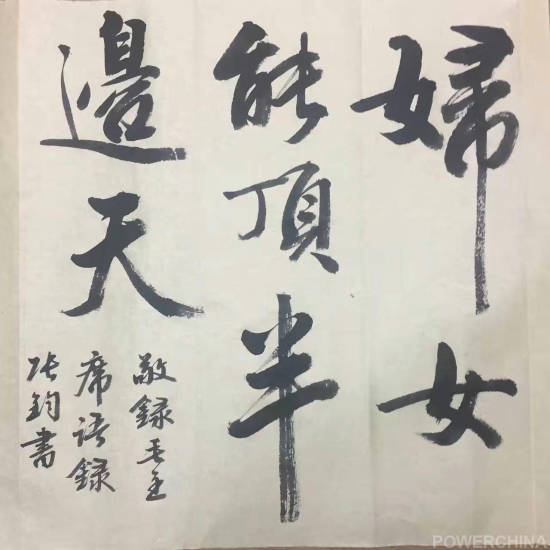 婦女
能頂半
邊天
敬録毛主
席语録
张鈞書
POWERCHINA